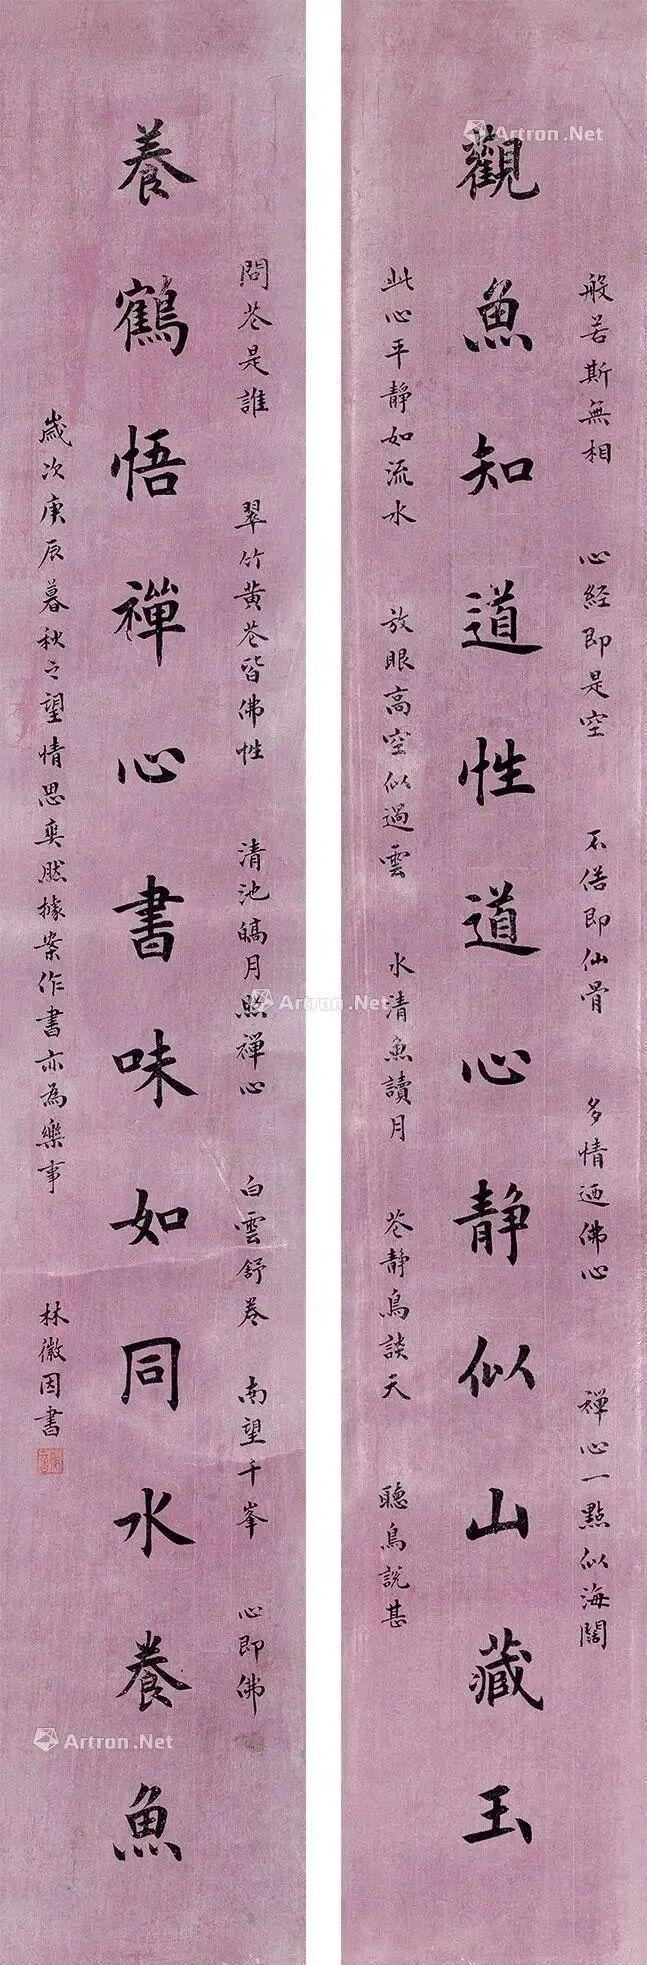 般若斯無相 心經即是空 不俗即仙骨 多情迺佛心 禪心一點似海闊
觀魚知道性道心靜似山藏玉
此心平靜如流水 放眼高空似過雲 水清魚讀月 花靜鳥談天 聽鳥說甚
問花是誰 翠竹黃花皆佛性 清池皓月照禪心 白雲舒卷 南望千峯 心即佛
養鶴悟禪心書味如同水養魚
歲次庚辰暮秋之望情思奕然據案作書亦為樂事 林徽因書
Artron.Net
Artron.Net
Artron.Net
Artron.Net